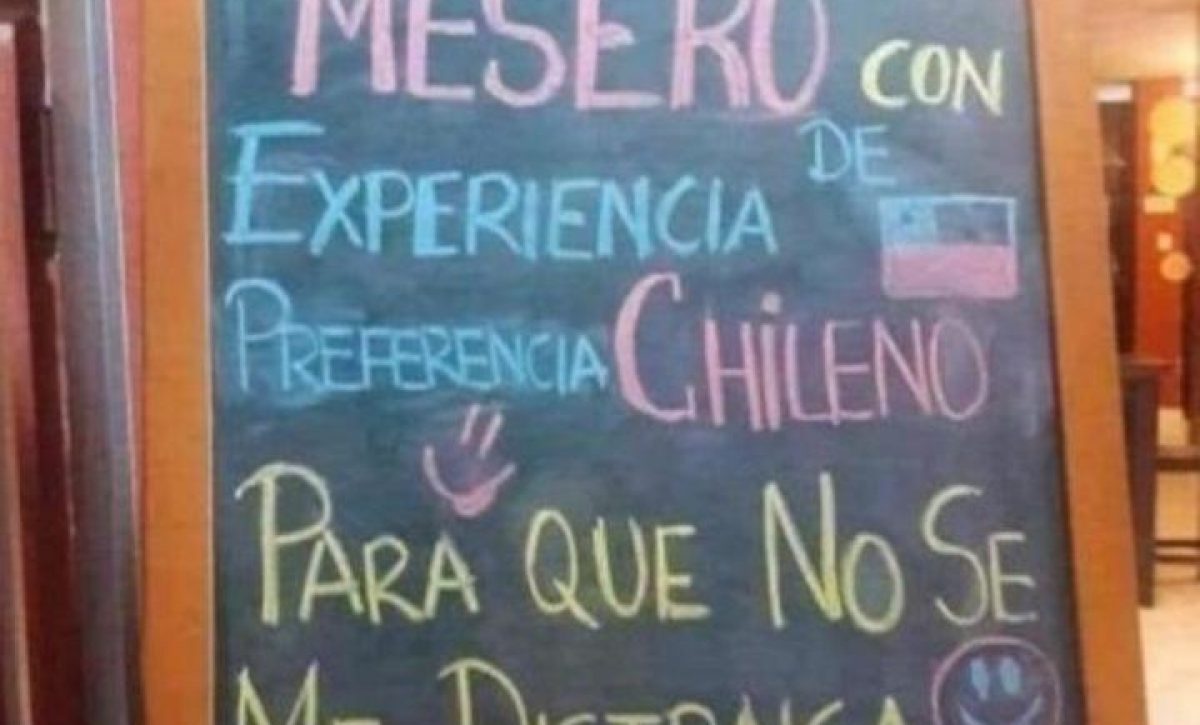 MESERO CON
EXPERIENCIA DE
PREFERENCIA CHiLENO
PARA QUE NO SE
ME DISTRAIGA